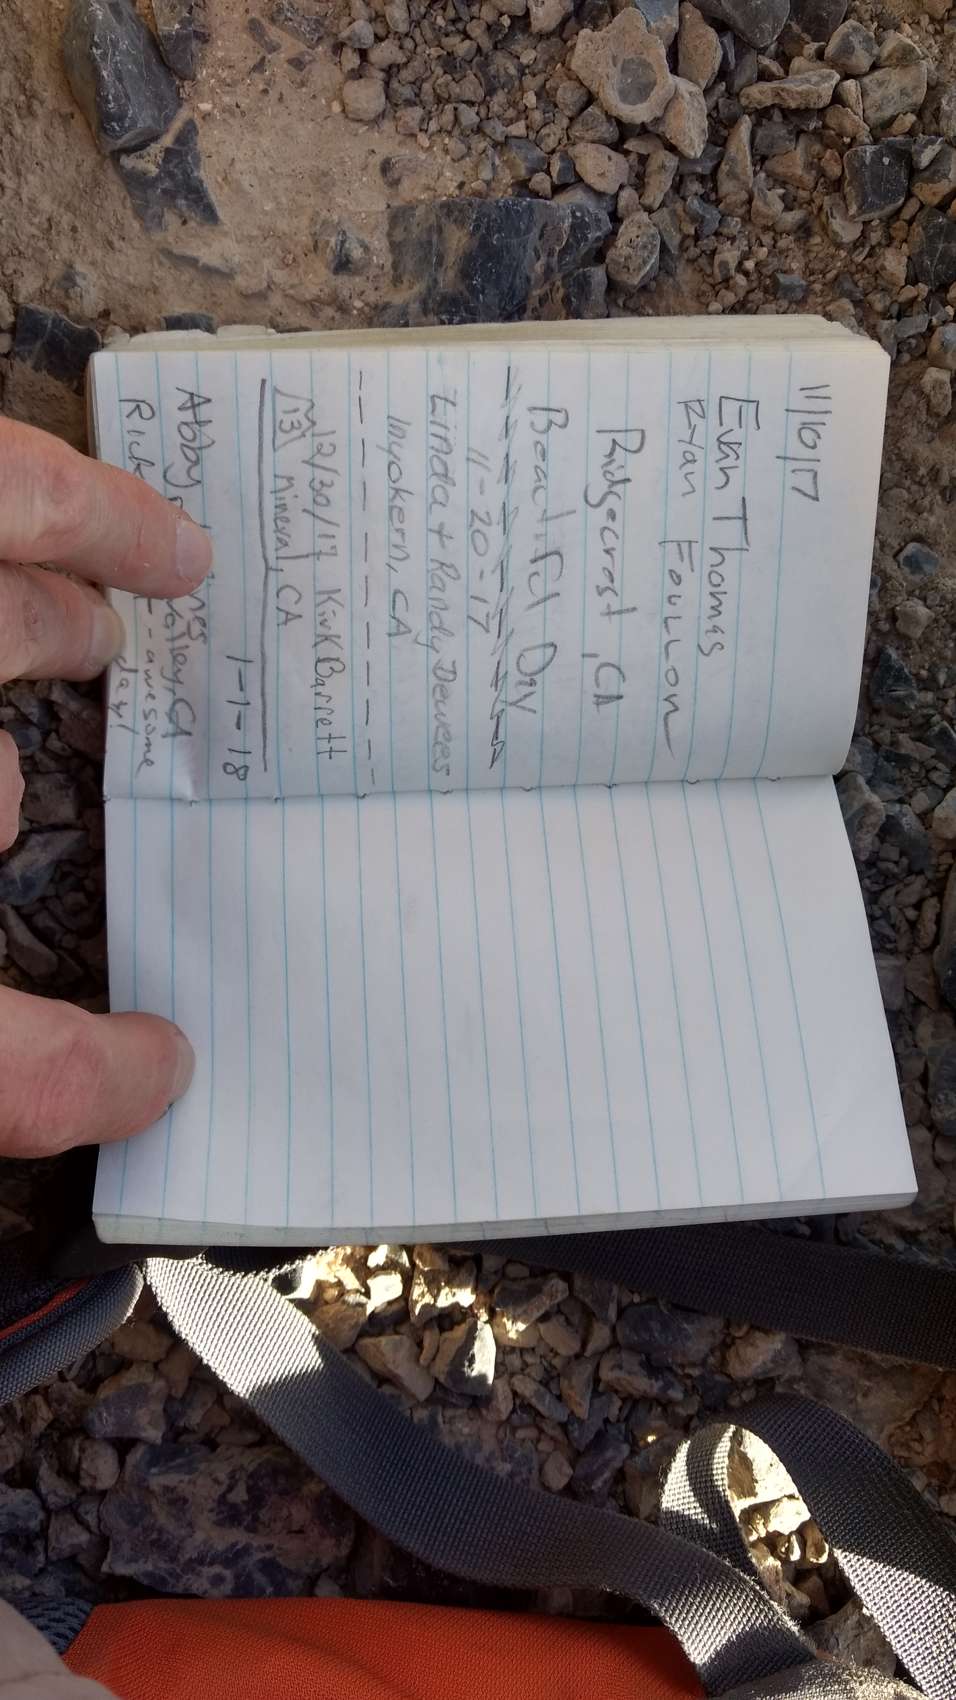 11/10/17
Evan Thomas
Ryan FOULLON
Ridgecrest, CA
Beautiful Day
11-20-17
Linda + Randy Dewees
Inyokern, CA
12/30/17 Kirk Barrett
M3 Mineral, CA
1-1-18
Abby
Rick Valley, CA
-awesome
day!